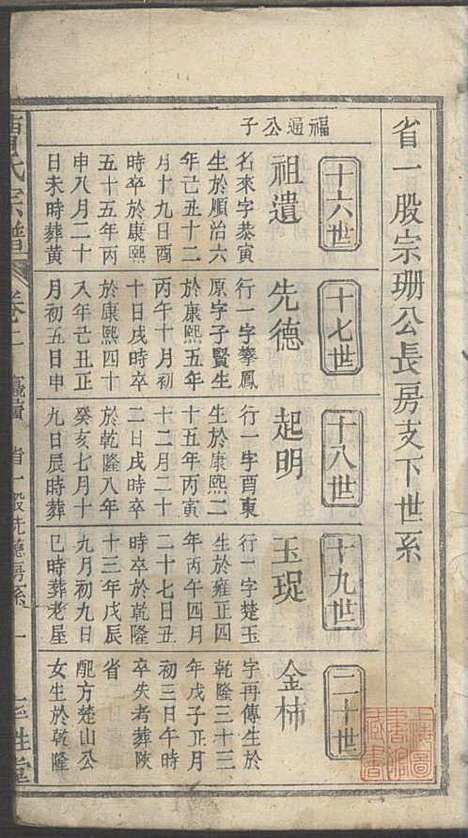 省一股宗珊公長房支下世系
福通公子
十六世
祖遺
名來字恭寅
生於順治六
年己丑十二
月十九日酉
時卒於康熙
五十五年丙
申八月二十
日未時葬黃
十七世
先德
行一字攀鳳
原字子賢生
於康熙五年
丙午十月初
十日戌時卒
於康熙四十
八年己丑正
月初五日申
十八世
起明
行一字酉東
生於康熙二
十五年丙寅
十二月二十
二日戌時卒
於乾隆八年
癸亥七月十
九日辰時葬
十九世
玉珿
行一字楚玉
生於雍正四
年丙午四月
二十七日丑
時卒於乾隆
十三年戊辰
九月初九日
巳時葬老屋
二十世
金柿
字再傳生於
乾隆三十三
年戊子正月
初三日午時
卒失考葬陝
省
配方楚山公
女生於乾隆
氏宗譜
卷二
省一股
房系
一